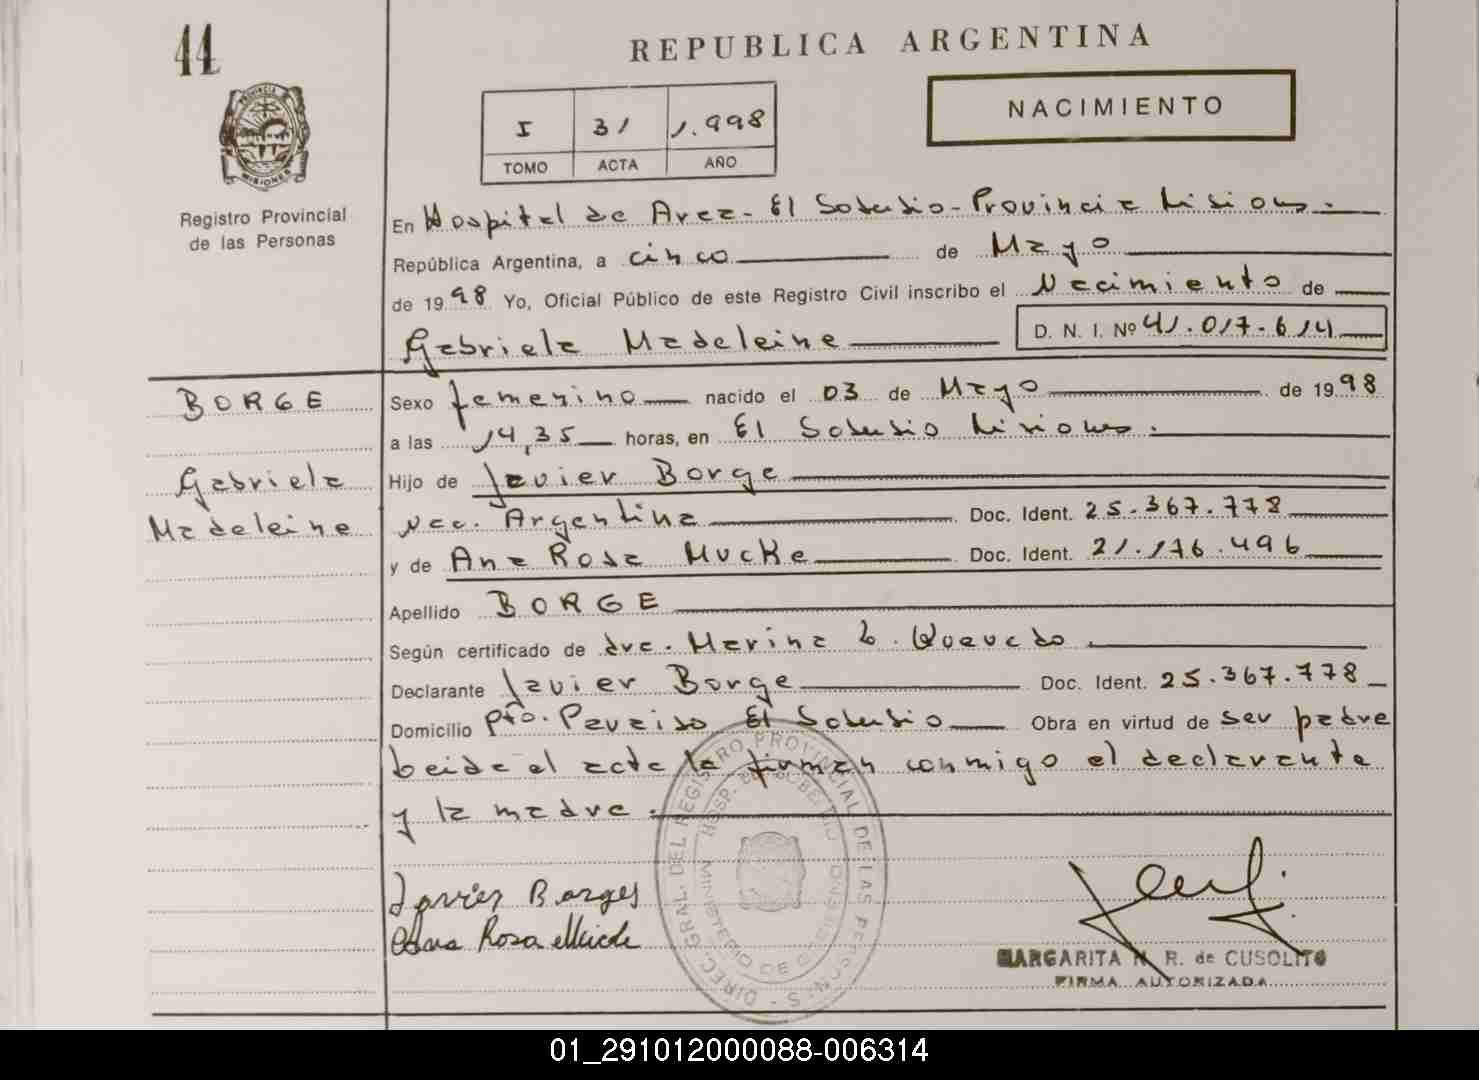 44
REPUBLICA ARGENTINA
PROVINCIA
MISIONES
Registro Provincial
de las Personas
I 31 1.998
TOMO ACTA AÑO
NACIMIENTO
En Hospital de Area - El Soberbio - Provincia Misiones.
República Argentina, a cinco de Mayo
de 1998 Yo, Oficial Público de este Registro Civil inscribo el Nacimiento de
Gabriela Madeleine D. N. I. Nº 41.017.614
BORGE
Gabriela
Madeleine
Sexo femenino nacido el 03 de Mayo de 1998
a las 14,35 horas, en El Soberbio Misiones.
Hijo de Javier Borge
Nac. Argentina Doc. Ident. 25.367.778
y de Ana Rosa Mucke Doc. Ident. 21.176.496
Apellido BORGE
Según certificado de dra. Marina L. Quevedo.
Declarante Javier Borge Doc. Ident. 25.367.778
Domicilio Pto. Paraiso El Soberbio Obra en virtud de ser padre
Leida el acta la firman conmigo el declarante
y la madre.
DIREC. GRAL. DEL REGISTRO PROVINCIAL DE LAS PERSONAS
HOSP. EL SOBERBIO
MINISTERIO DE GOBIERNO
Javier Borges
Ana Rosa Mucke
MARGARITA N. R. de CUSOLITO
FIRMA AUTORIZADA
01_291012000088-006314